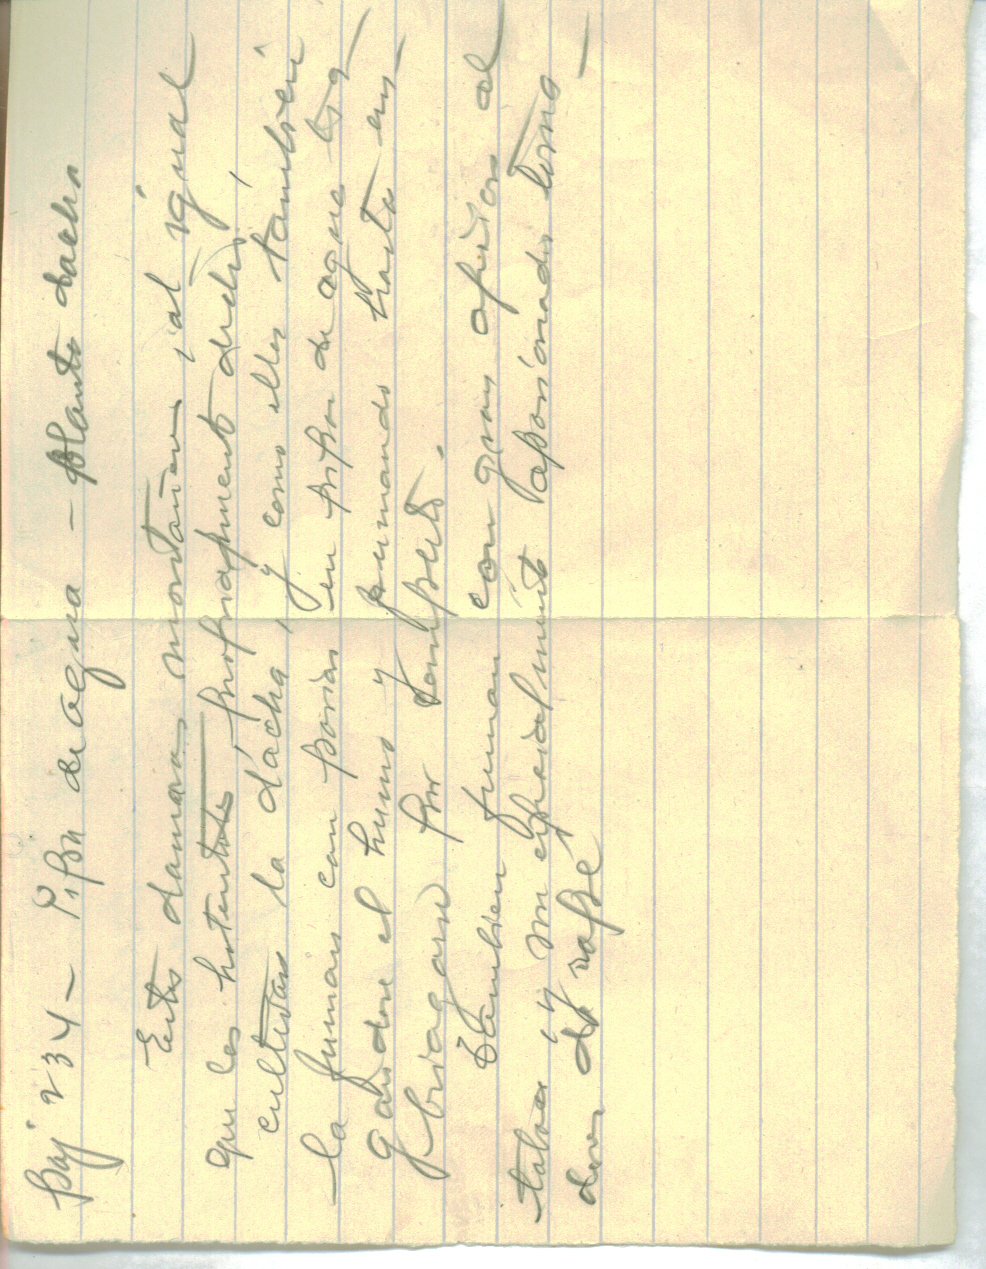 Paj 234 — Pipa de agua — planta dacha
Estos damaras montañeses, al igual
que los hotentotes propiapmente dichos,
cultivan la dácha, y como ellos también
la fuman con pasion en pipas de agua tra-
gandose el humo y fumando hasta em-
briagarse por completo.
También fuman con gran aficion al
tabaco, y son especialmente apasionados toma-
dores de rapé